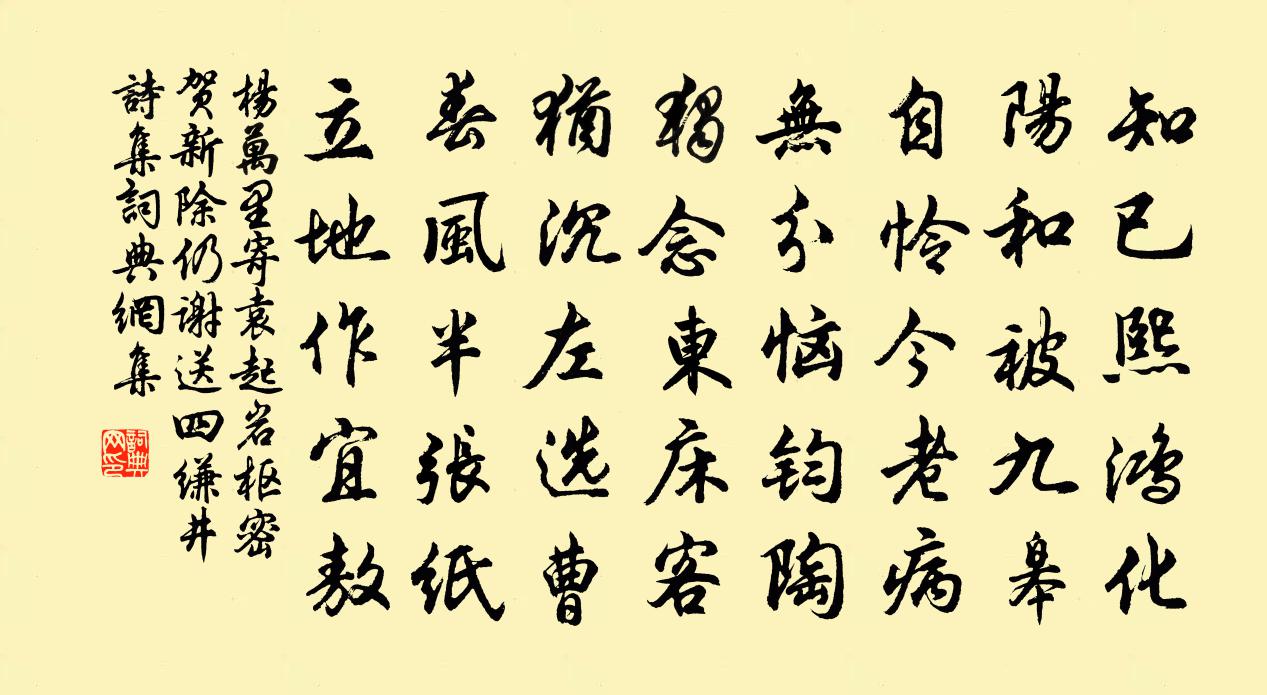 知已熙鸿化
陽和被九皋
自怜今老病
無分恼钧陶
獨念東床客
猶沉左选曹
春風半張紙
立地作宜敖
楊萬里寄袁起岩枢密
贺新除仍谢送四缣井
詩集詞典網集
詞典
网印